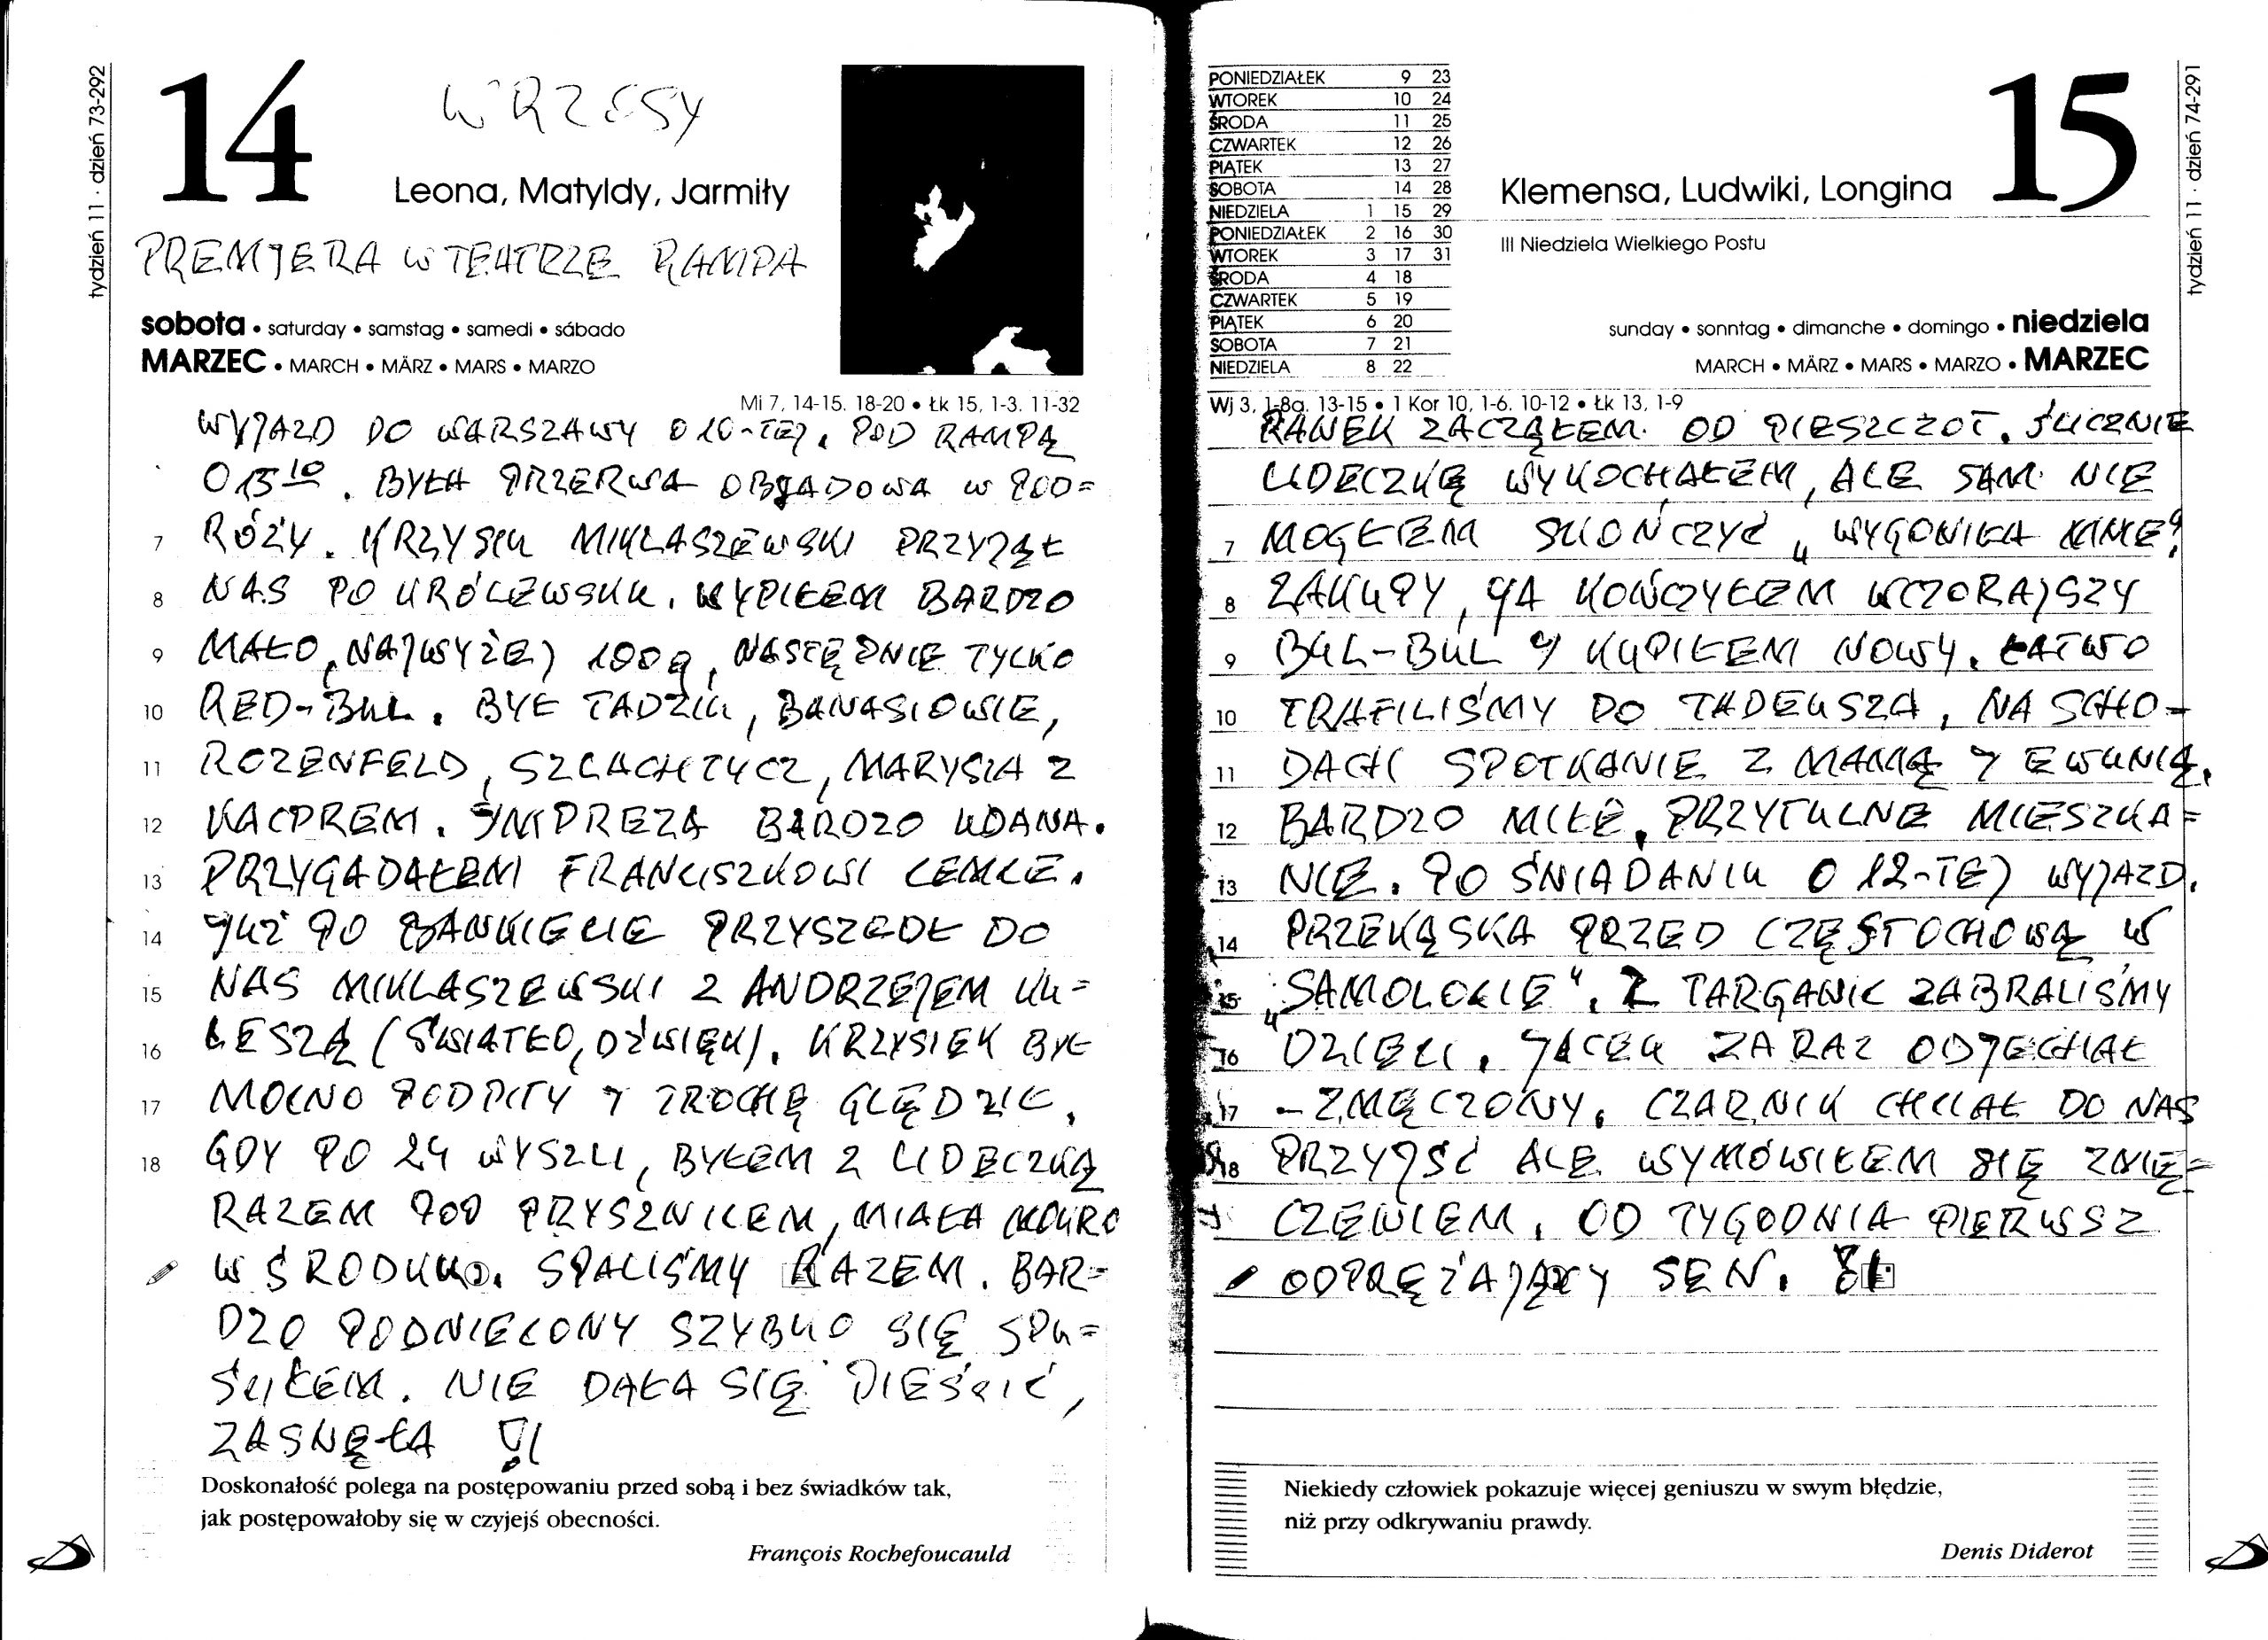 tydzień 11 · dzień 73-292
14
WRZOSY
Leona, Matyldy, Jarmiły
PREMJERA W TEATRZE RAMPA
sobota • saturday • samstag • samedi • sábado
MARZEC • MARCH • MÄRZ • MARS • MARZO
Mi 7, 14-15. 18-20 • Łk 15, 1-3. 11-32
WYJAZD DO WARSZAWY O 10-TEJ. POD RAMPĄ
O 15 10. BYŁA PRZERWA OBJADOWA W POD=
7 RÓŻY. KRZYSIU MIKLASZEWSKI PRZYJĄŁ
8 NAS PO KRÓLEWSKU. WYPIŁEM BARDZO
9 MAŁO, NAJWYŻEJ 100g, NASTĘPNIE TYLKO
10 RED-BUL. BYŁ TADZIU, BANASIOWIE,
11 ROZENFELD, SZLACHTYCZ, MARYSIA Z
12 KACPREM. IMPREZA BARDZO UDANA.
13 PRZYGADAŁEM FRANCISZKOWI LEMLE.
14 JUŻ PO BANKIECIE PRZYSZEDŁ DO
15 NAS MIKLASZEWSKI Z ANDRZEJEM KU=
16 LESZĄ (ŚWIATŁO, DŹWIĘK). KRZYSIEK BYŁ
17 MOCNO PODPITY I TROCHĘ GLĘDZIŁ.
18 GDY PO 24 WYSZLI, BYŁEM Z LIDECZKĄ
RAZEM POD PRYSZNICEM, MIAŁA MOKRO
W ŚRODKU. SPALIŚMY RAZEM. BAR=
DZO PODNIECONY SZYBKO SIĘ SPU=
ŚCIŁEM. NIE DAŁA SIĘ PIEŚCIĆ,
ZASNĘŁA !!
Doskonałość polega na postępowaniu przed sobą i bez świadków tak,
jak postępowałoby się w czyjejś obecności.
François Rochefoucauld
PONIEDZIAŁEK 9 23
WTOREK 10 24
ŚRODA 11 25
CZWARTEK 12 26
PIĄTEK 13 27
SOBOTA 14 28
NIEDZIELA 1 15 29
PONIEDZIAŁEK 2 16 30
WTOREK 3 17 31
ŚRODA 4 18
CZWARTEK 5 19
PIĄTEK 6 20
SOBOTA 7 21
NIEDZIELA 8 22
15
tydzień 11 · dzień 74-291
Klemensa, Ludwiki, Longina
III Niedziela Wielkiego Postu
sunday • sonntag • dimanche • domingo • niedziela
MARCH • MÄRZ • MARS • MARZO • MARZEC
Wj 3, 1-8a. 13-15 • 1 Kor 10, 1-6. 10-12 • Łk 13, 1-9
RANEK ZACZĄŁEM OD PIESZCZOT. ŚLICZNIE
LIDECZKĘ WYKOCHAŁEM, ALE SAM NIE
7 MOGŁEM SKOŃCZYĆ „WYGONIŁA MNIE"
8 ZAKUPY, JA KOŃCZYŁEM WCZORAJSZY
9 BUL-BUL I KUPIŁEM NOWY. ŁATWO
10 TRAFILIŚMY DO TADEUSZA, NA SCHO=
11 DACH SPOTKANIE Z MAMĄ I EWUNIĄ,
12 BARDZO MIŁE, PRZYTULNE MIESZKA=
13 NIE. PO ŚNIADANIU O 12-TEJ WYJAZD.
14 PRZEKĄSKA PRZED CZĘSTOCHOWĄ W
15 „SAMOLOCIE". Z TARGANIC ZABRALIŚMY
16 DZIECI. JACEK ZARAZ ODJECHAŁ
17 - ZMĘCZONY. CZARNIK CHCIAŁ DO NAS
18 PRZYJŚĆ ALE WYMÓWIŁEM SIĘ ZMĘ=
CZENIEM. OD TYGODNIA PIERWSZ
ODPRĘŻAJĄCY SEN.
Niekiedy człowiek pokazuje więcej geniuszu w swym błędzie,
niż przy odkrywaniu prawdy.
Denis Diderot